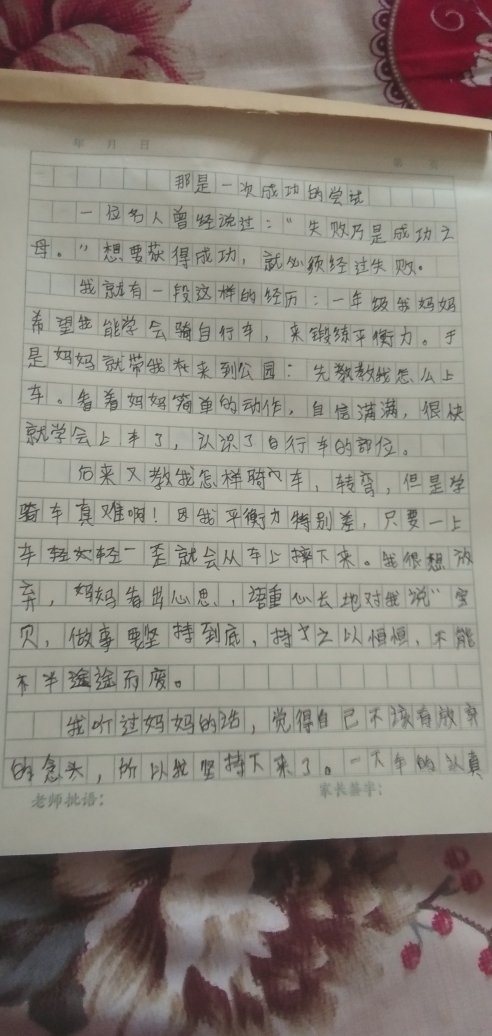 年 月 日
第 页
那是一次成功的尝试
一位名人曾经说过：“失败乃是成功之
母。”想要获得成功，就必须经过失败。
我就有一段这样的经历：一年级我妈妈
希望我能学会骑自行车，来锻练平衡力。于
是妈妈就带我来到公园：先教教我怎么上
车。看着妈妈简单的动作，自信满满，很快
就学会上车了，认识了自行车的部位。
后来又教我怎样骑车，转弯，但是学
骑车真难啊！因我平衡力特别差，只要一上
车轻轻一歪就会从车上摔下来。我很想放
弃，妈妈看出心思，语重心长地对我说“宝
贝，做事要坚持到底，持之以恒，不能
半途而废。
我听过妈妈的话，觉得自己不该有放弃
的念头，所以我坚持下来了。一下午的认真
老师批语：
家长签字：